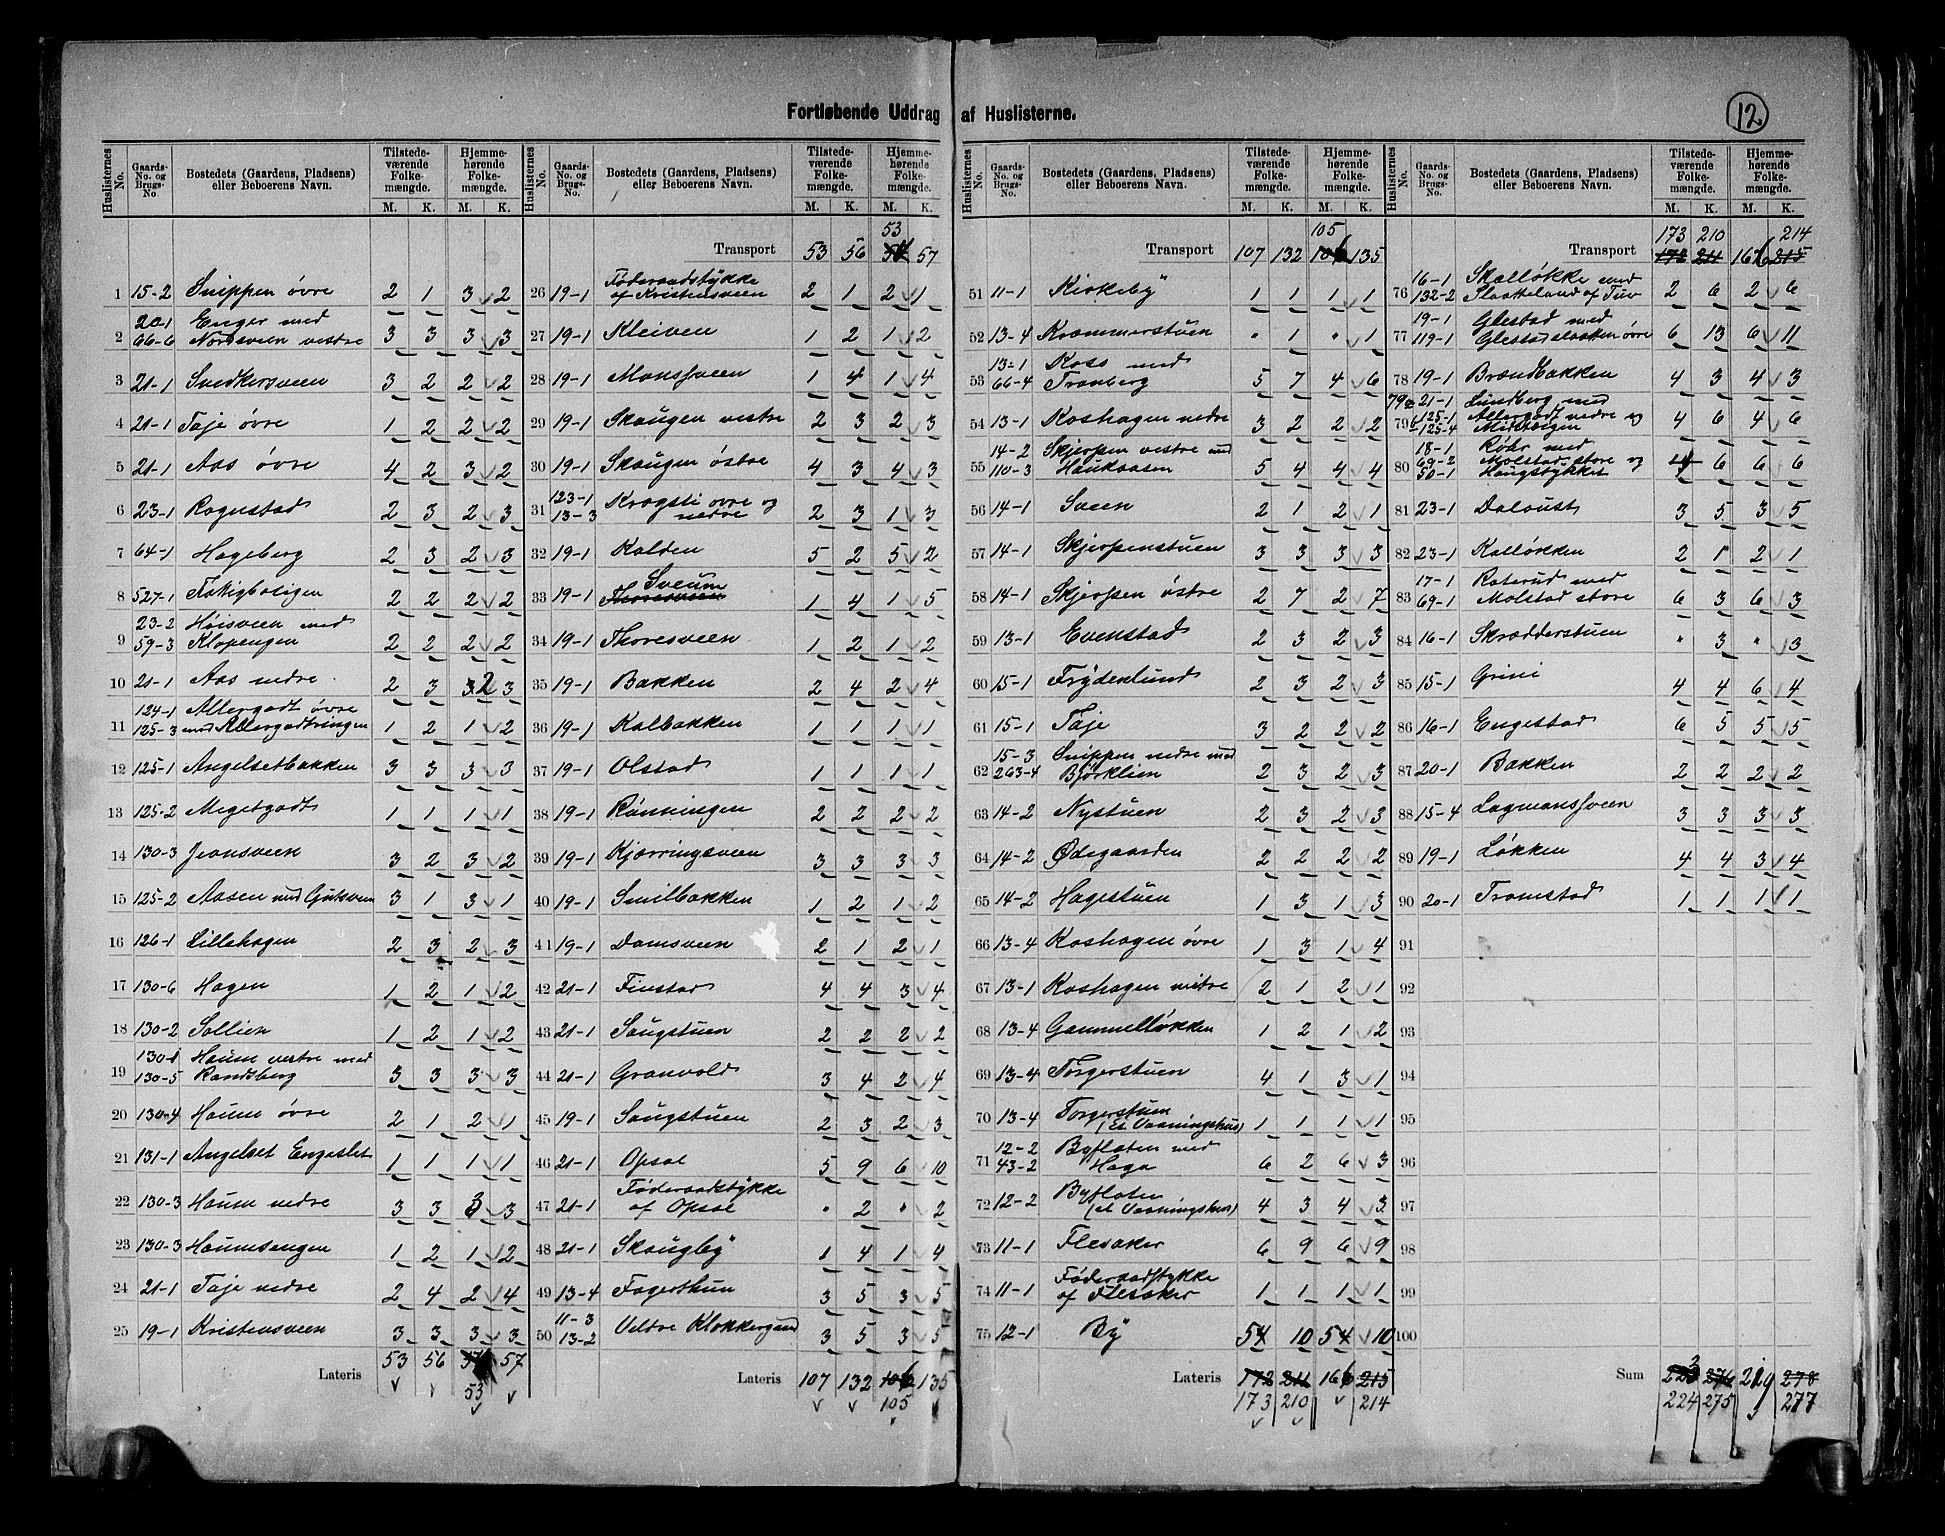 Fortløbende Uddrag af Huslisterne.
12
Huslisternes No. | Gaards-No. og Brugs-No | Bostedets (Gaardens, Pladsens) eller Beboerens Navn. | Tilstedeværende Folkemængde. M. K. | Hjemmehørende Folkemængde. M. K.
1 15-2 Snippen øvre 2 1 3 2
2 20-1 66-6 Enger med Nordsveen vestre 3 3 3 3
3 21-1 Svedkersveen 3 2 2 2
4 21-1 Taje øvre 1 2 2 2
5 21-1 Aas øvre 4 2 3 2
6 23-1 Rognstad 2 3 2 3
7 64-1 Hageberg 2 3 2 3
8 527-1 Fattigboligen 2 2 2 2
9 23-2 59-3 Hoisveen med Klopengen 2 2 2 2
10 21-1 Aas nedre 2 3 2 3
11 124-1 125-3 Allergodt øvre med Allergodtringen 1 2 1 2
12 125-1 Angelsetbakken 3 3 3 3
13 125-2 Megetgodt 1 1 1 1
14 130-3 Jensveen 3 2 3 2
15 125-2 Aasen med Gutsveen 3 1 3 1
16 126-1 Lillehagen 2 3 2 3
17 130-6 Hagen 1 2 1 2
18 130-2 Sollien 1 2 1 2
19 130-1 130-5 Houm vestre med Randsberg 3 3 3 3
20 130-4 Houm øvre 2 1 2 1
21 131-1 Angelset Engeslet 1 1 1 1
22 130-3 Houm nedre 3 3 3 3
23 130-3 Houmsengen 1 2 1 2
24 21-1 Taje nedre 2 4 2 4
25 19-1 Kristensveen 3 3 3 3
Lateris 53 56 57
53
Huslisternes No. | Gaards-No. og Brugs-No | Bostedets (Gaardens, Pladsens) eller Beboerens Navn. | Tilstedeværende Folkemængde. M. K. | Hjemmehørende Folkemængde. M. K.
53
Transport 53 56 54 57
26 19-1 Føderaadstykke af Kristensveen 2 1 2 1
27 19-1 Kleiven 1 2 1 2
28 19-1 Monssveen 1 4 1 4
29 19-1 Skaugen vestre 2 3 2 3
30 19-1 Skaugen østre 4 3 4 3
31 123-1 13-3 Krogsti øvre og nedre 2 3 1 3
32 19-1 Kolden 5 2 5 2
33 19-1 Sveum Thoresveen 1 4 1 5
34 19-1 Thoresveen 1 2 1 2
35 19-1 Bakken 2 4 2 4
36 19-1 Kolbakken 1 1 1 1
37 19-1 Olstad 1 1 1 1
38 19-1 Rønningen 2 2 2 2
39 19-1 Kjærringsveen 3 3 3 3
40 19-1 Smilbakken 1 2 1 2
41 19-1 Damsveen 2 1 2 1
42 21-1 Finstad 4 4 3 4
43 21-1 Saugstuen 2 2 2 2
44 21-1 Granvold 3 4 2 4
45 19-1 Saugstuen 2 3 2 3
46 21-1 Opsal 5 9 6 10
47 21-1 Føderaadstykke af Opsal " 2 " 2
48 21-1 Skaugby 1 4 1 4
49 13-4 Fagerthun 3 5 3 5
50 11-3 13-2 Veldre Klokkergaard 3 5 3 5
Lateris 107 132 106 135
105
Huslisternes No. | Gaards-No. og Brugs-No | Bostedets (Gaardens, Pladsens) eller Beboerens Navn. | Tilstedeværende Folkemængde. M. K. | Hjemmehørende Folkemængde. M. K.
105
Transport 107 132 106 135
51 11-1 Kirkeby 1 1 1 1
52 13-4 Krammerstuen " 1 " 1
53 13-1 66-4 Koss med Tranberg 5 7 4 6
54 13-1 Koshagen nedre 3 2 2 2
55 14-2 110-3 Skjerpen vestre med Hauksasen 5 4 4 4
56 14-1 Sveen 2 1 2 1
57 14-1 Skjerpenstuen 3 3 3 3
58 14-1 Skjerpen østre 2 7 2 7
59 13-1 Evenstad 2 3 2 3
60 15-1 Frydenlund 2 3 2 3
61 15-1 Taje 3 2 2 2
62 15-3 263-4 Snippen nedre med Bjørklien 2 3 2 3
63 14-2 Nystuen 2 3 2 3
64 14-2 Ødegaarden 2 2 2 2
65 14-2 Hagestuen 1 3 1 3
66 13-4 Koshagen øvre 1 3 1 4
67 13-1 Koshagen mitre 2 1 2 1
68 13-4 Gammelløkken 1 2 1 2
69 13-4 Torgerstuen 4 1 3 1
70 13-4 Torgerstuen (Et Vaaningshus) 1 1 1 1
71 12-2 43-2 Byflaten med Haga 6 2 6 3
72 12-2 Byflaten (et Vaaningshus) 4 3 4 3
73 11-1 Flesaker 6 9 6 9
74 11-1 Føderaadstykke af Flesaker 1 1 1 1
75 12-1 By 54 10 54 10
Lateris 172 211 166 215
173 210 214
Huslisternes No. | Gaards-No. og Brugs-No. | Bostedets (Gaardens, Pladsens) eller Beboerens Navn. | Tilstedeværende Folkemængde. M. K. | Hjemmehørende Folkemængde. M. K.
173 210 214
Transport 172 211 166 215
76 16-1 132-2 Skalløkke med Slaatteland af Tuv 2 6 2 6
77 19-1 119-1 Glestad med Glestadslaatten øvre 6 13 6 11
78 19-1 Brændbakken 4 3 4 3
79a 21-1 79b 125-1 125-4 Lundberg med Allergodt nedre og Midtbergen 4 6 4 6
80 18-1 69-2 50-1 Røhr med Molstad store og Haugstykket 6 6 6
81 23-1 Daloust 3 5 3 5
82 23-1 Kalløkken 2 1 2 1
83 17-1 69-1 Roterud med Molstad store 6 3 6 3
84 16-1 Skrædderstuen " 3 " 3
85 15-1 Grini 4 4 6 4
86 16-1 Engestad 6 5 5 5
87 20-1 Bakken 2 2 2 2
88 15-4 Lagmanssveen 3 3 3 3
89 19-1 Løkken 4 4 3 4
90 20-1 Tromstad 1 1 1 1
91
92
93
94
95
96
97
98
99
100
Sum 223 276 219 278
224 275 277